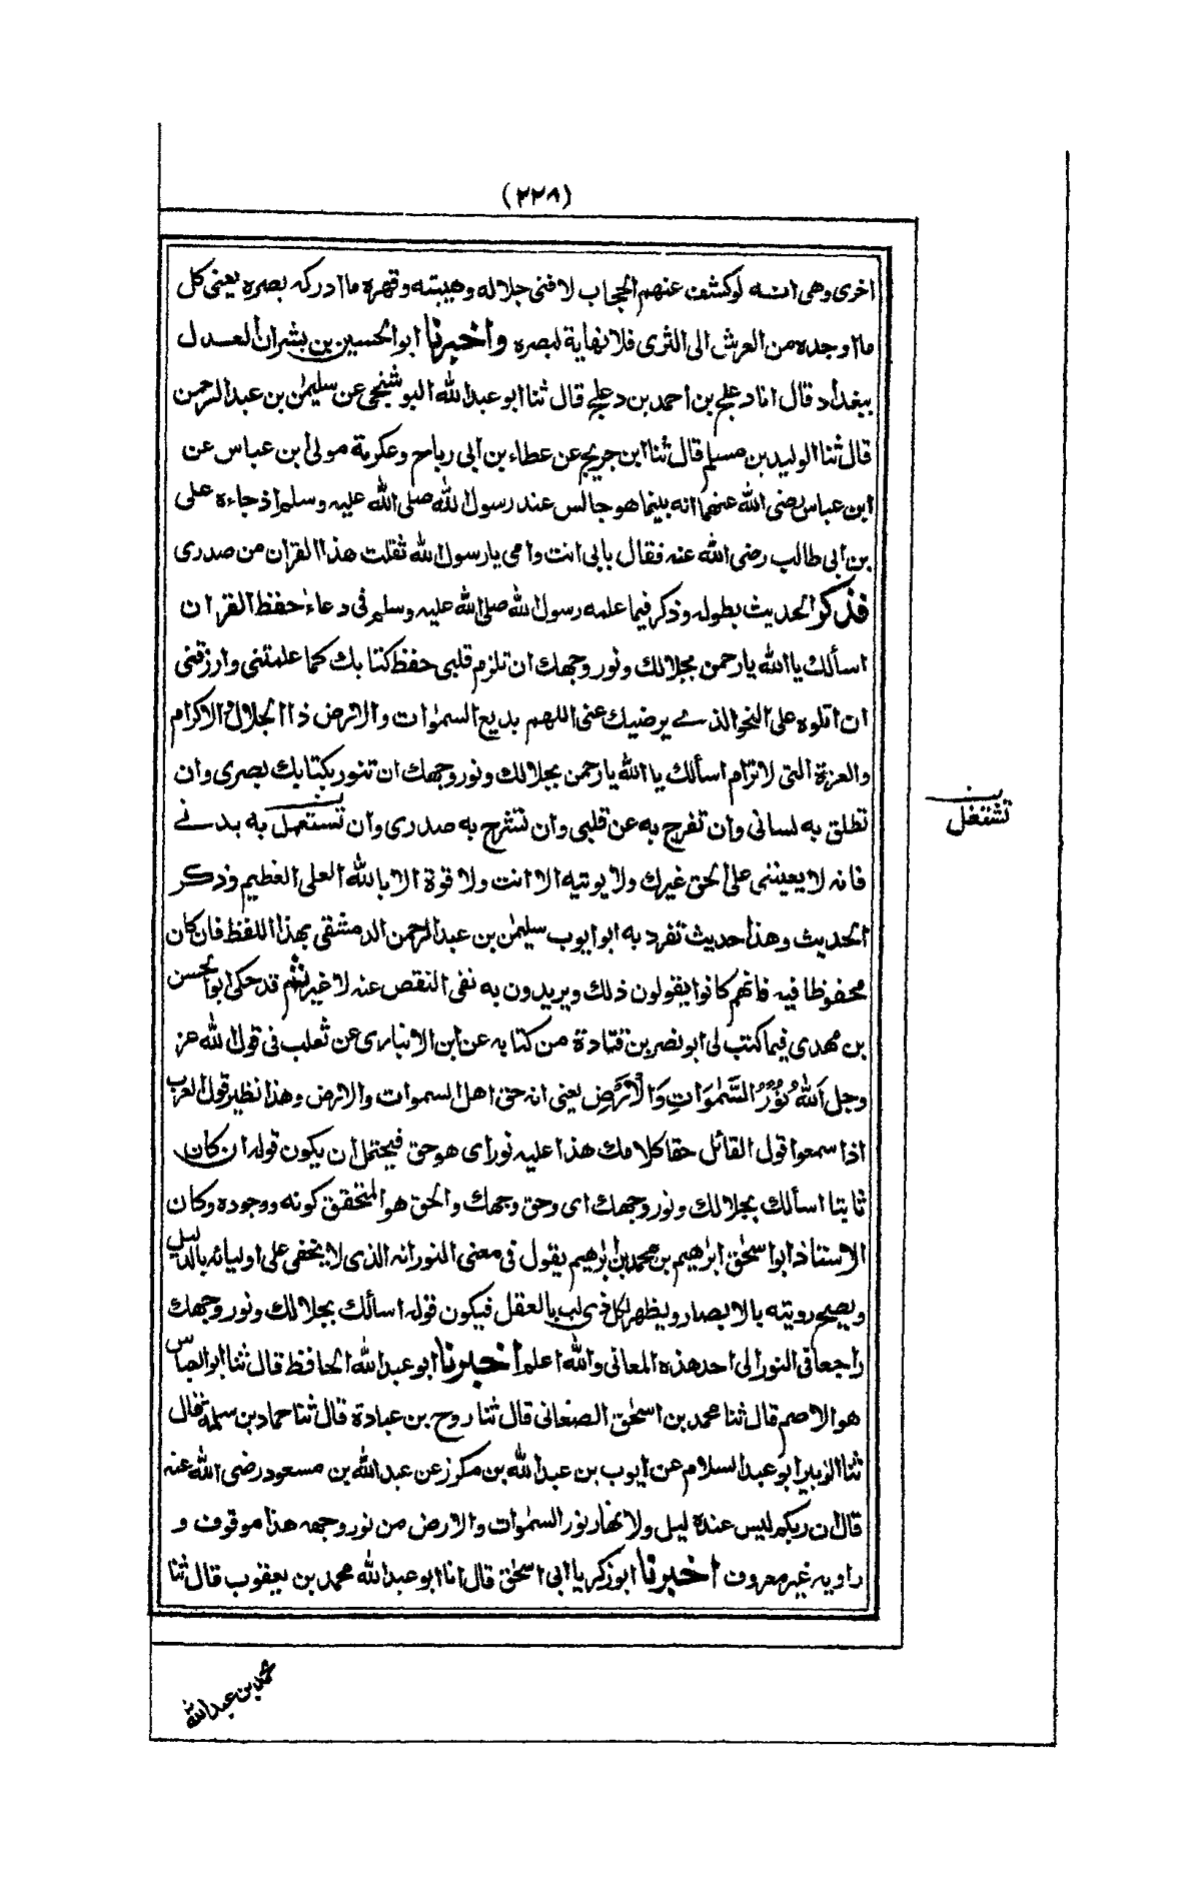 (٢٢٨)
اخرى وهى انه لو كشف عنهم الحجاب لافنى جلاله وهيبته وقهره ما ادركه بصره يعنى كل
ما اوجده من العرش الى الثرى فلا نهاية لبصره واخبرنا ابوالحسين بن بشران العدل
ببغداد قال انا دعلج بن احمد بن دعلج قال ثنا ابو عبد الله البوشنجى عن سليمٰن بن عبد الرحمن
قال ثنا الوليد بن مسلم قال ثنا ابن جريج عن عطاء بن ابى رباح وعكرمة مولى ابن عباس عن
ابن عباس رضى الله عنهما انه بينما هو جالس عند رسول الله صلى الله عليه وسلم اذ جاءه على
بن ابى طالب رضى الله عنه فقال بابى انت وامى يا رسول الله تفلت هذا القران من صدرى
فذكر الحديث بطوله وذكر فيما علمه رسول الله صلى الله عليه وسلم فى دعاء حفظ القران
اسألك يا الله يا رحمن بجلالك ونور وجهك ان تلزم قلبى حفظ كتابك كما علمتنى وارزقنى
ان اتلوه على النحو الذى يرضيك عنى اللهم بديع السمٰوات والارض ذا الجلال والاكرام
والعزة التى لا ترام اسألك يا الله يا رحمن بجلالك ونور وجهك ان تنور بكتابك بصرى وان
تطلق به لسانى وان تفرج به عن قلبى وان تشرح به صدرى وان تستعمل به بدنى
تشتغل
فانه لا يعيننى على الحق غيرك ولا يوتيه الا انت ولا قوة الا بالله العلى العظيم وذكر
الحديث وهذا حديث تفرد به ابو ايوب سليمٰن بن عبد الرحمن الدمشقى بهذا اللفظ فان كان
محفوظا فيه فانهم كانوا يقولون ذلك ويريدون به نفى النقص عنه لا غير ثم قد حكى ابوالحسن
بن مهدى فيما كتب لى ابو نصر بن قتادة من كتابه عن ابن الانبارى عن ثعلب فى قول الله عز
وجل اَللهُ نُوْرُ السَّمٰوَاتِ وَالْاَرْضِ يعنى انه حق اهل السموات والارض وهذا نظير قول العرب
اذا سمعوا قول القائل حقا كلامك هذا عليه نور اى هو حق فيحتمل ان يكون قوله ان كان
ثابتا اسألك بجلالك ونور وجهك اى وحق وجهك والحق هو المتحقق كونه ووجوده وكان
الاستاذ ابو اسحٰق ابرٰهيم بن محمد بن ابرٰهيم يقول فى معنى النور انه الذى لا يخفى على اوليائه بالدليل
ويصح رويته بالابصار ويظهر لكل ذى لب بالعقل فيكون قوله اسألك بجلالك ونور وجهك
راجعا فى النور الى احد هذه المعانى والله اعلم اخبرنا ابو عبد الله الحافظ قال ثنا ابوالعباس
هو الاصم قال ثنا محمد بن اسحٰق الصغانى قال ثنا روح بن عبادة قال ثنا حماد بن سلمة قال
ثنا الزبير ابو عبد السلام عن ايوب بن عبد الله بن مكرز عن عبد الله بن مسعود رضى الله عنه
قال ان ربكم ليس عنده ليل ولا نهار نور السمٰوات والارض من نور وجهه هذا موقوف و
راويه غير معروف اخبرنا ابو زكريا ابى اسحٰق قال انا ابو عبد الله محمد بن يعقوب قال ثنا
محمد بن عبد الله